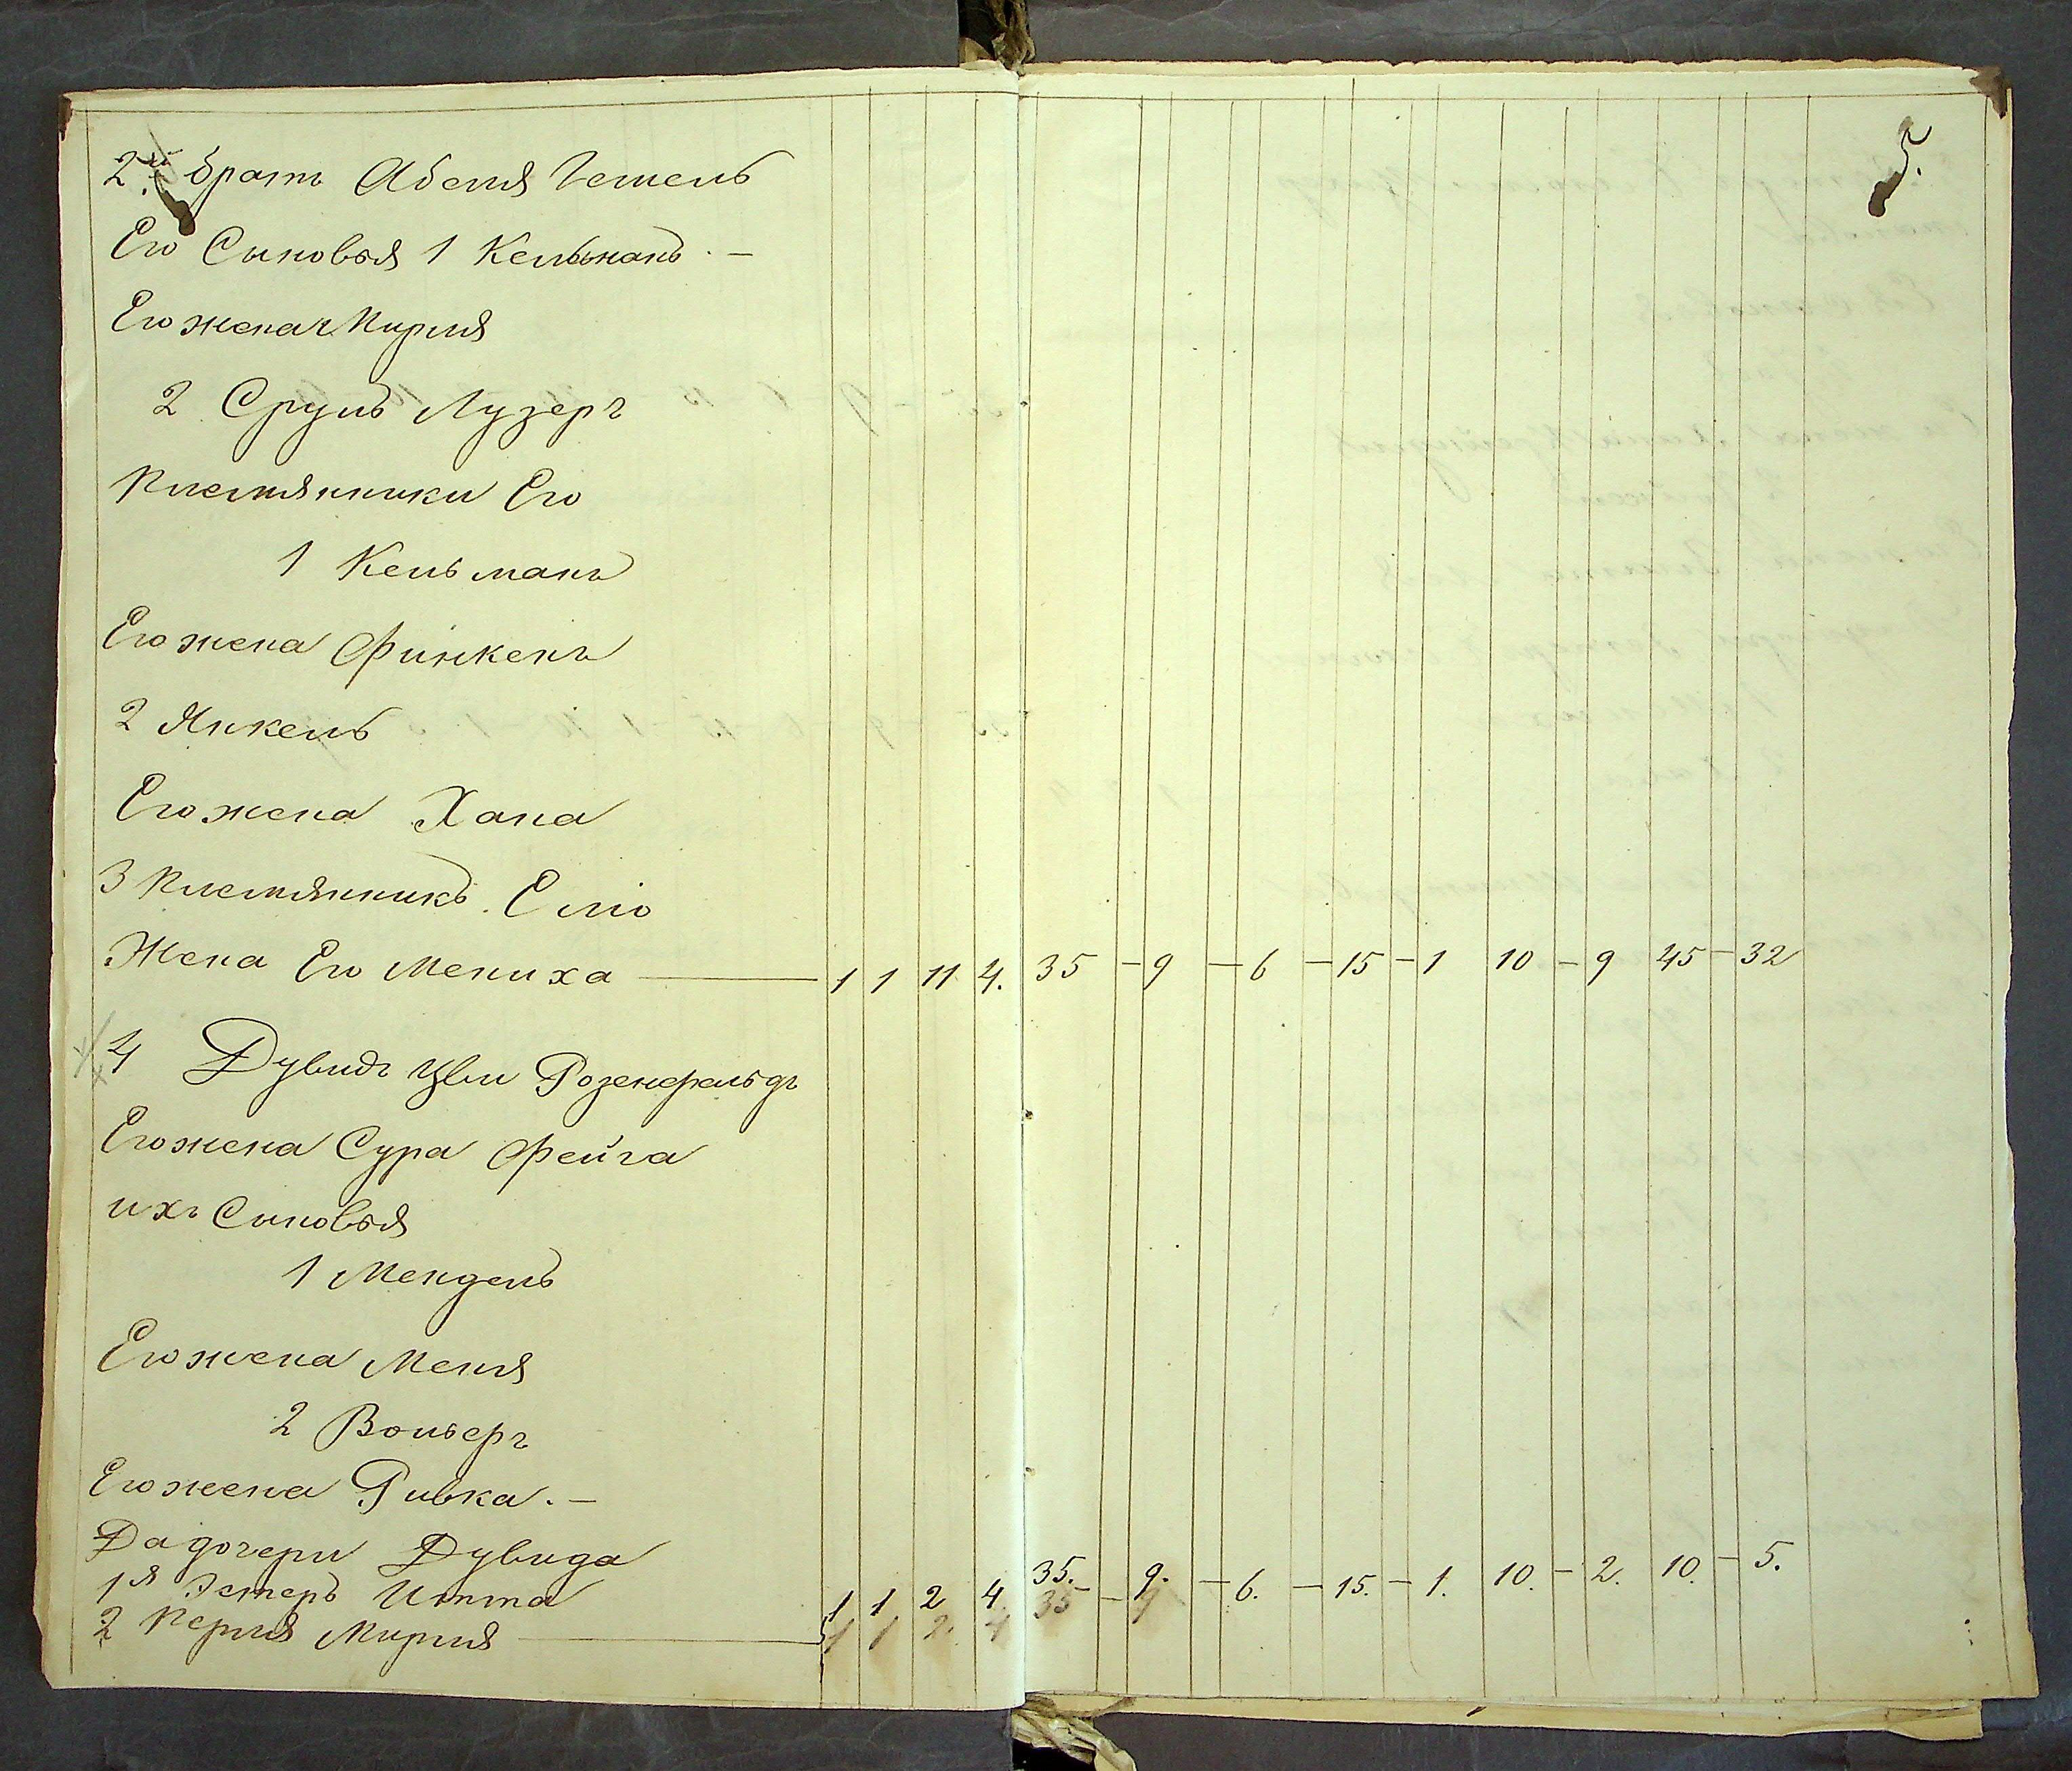 5.
2й братъ Абемя Гешель
Его Сыновья 1 Кельманъ. —
Его жена Мирля
2 Сруль Лузеръ
Племянники Его
1 Кельманъ
Его жена Финкенъ
2 Янкель
Его жена Хана
3 Племянникъ Еліо
Жена Его Мениха — 1 1 11 4. 35 – 9 – 6 – 15 – 1 10 – 9 45 – 32
4 Дувидъ Цви Розенфельдъ
Его жена Сура Фейга
ихъ Сыновья
1 Мендель
Его жена Меня
2 Вольеръ
Его жена Ривка. —
Да дочери Дувида
1я Эстеръ Итта 1 1 2 4. 35. – 9. – 6. – 15. – 1. 10. – 2. 10. – 5.
2 Перля Мирля — 1 1 2. 4 35 – 9